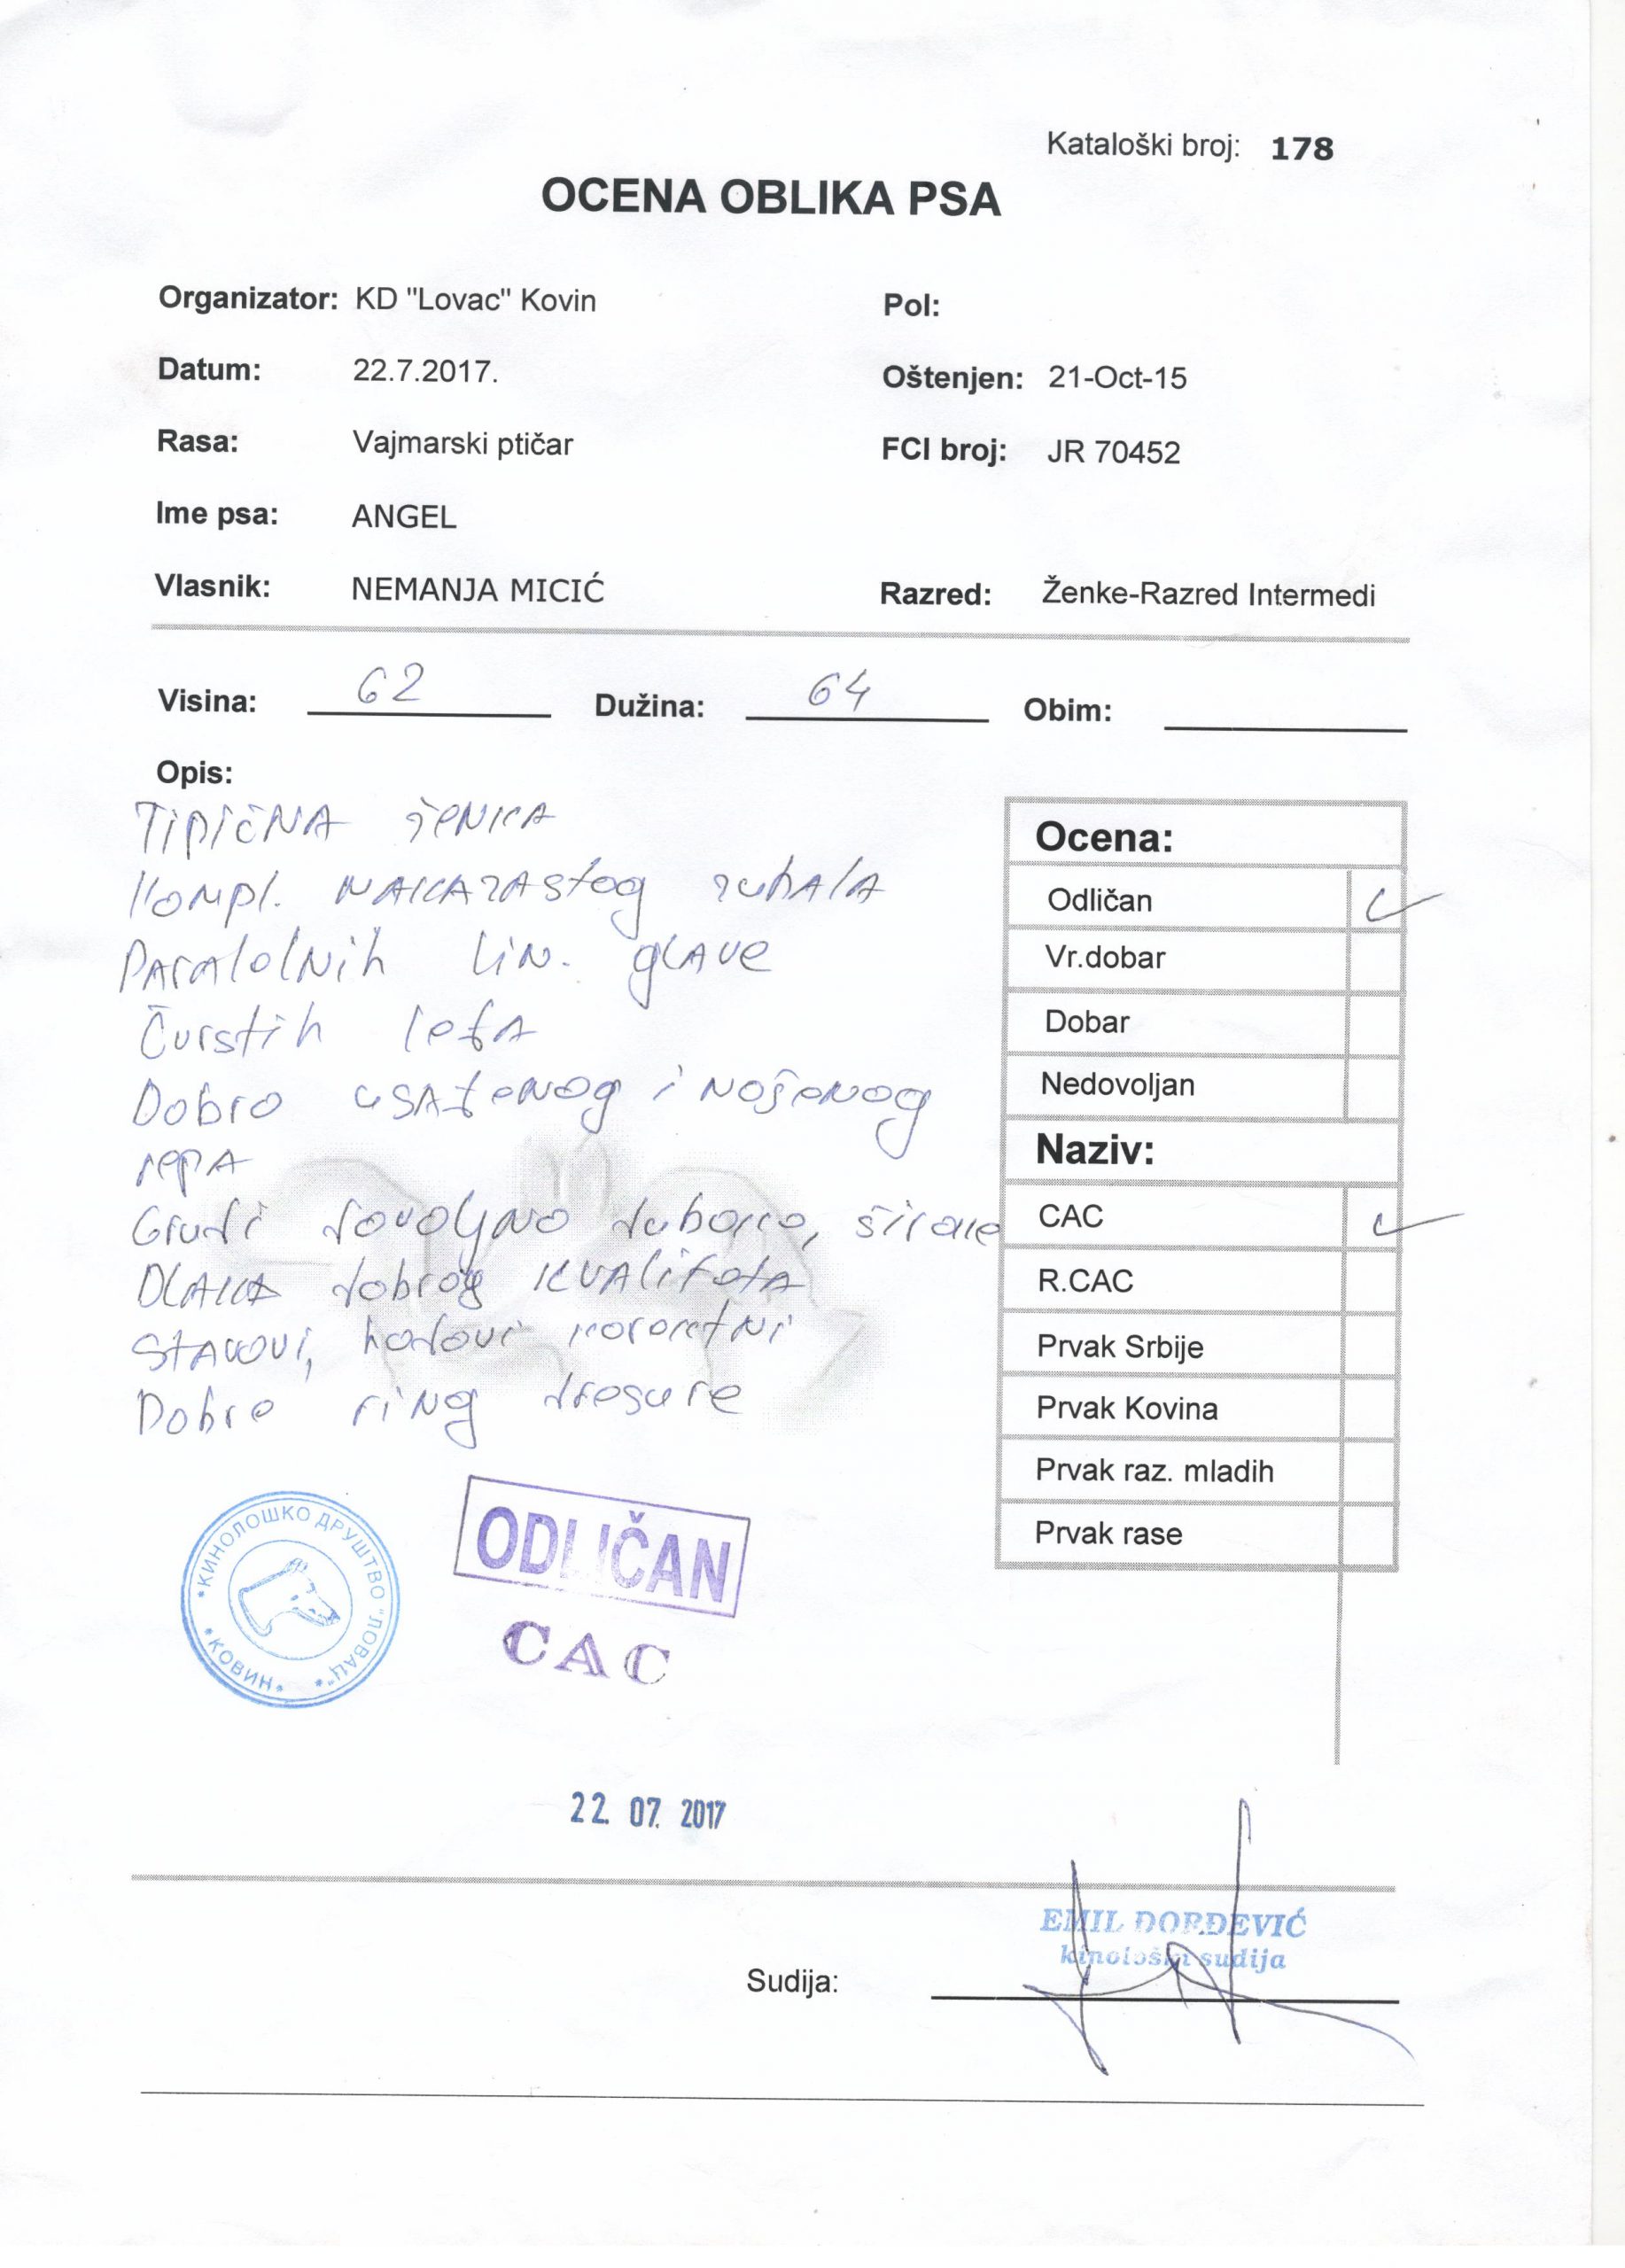 Kataloški broj: 178
OCENA OBLIKA PSA
Organizator: KD "Lovac" Kovin
Pol:
Datum: 22.7.2017.
Oštenjen: 21-Oct-15
Rasa: Vajmarski ptičar
FCI broj: JR 70452
Ime psa: ANGEL
Vlasnik: NEMANJA MICIĆ
Razred: Ženke-Razred Intermedi
Visina: 62 Dužina: 64 Obim:
Opis:
Tipična ženka
Kompl. makazastog zubala
Paralelnih lin. glave
Čvrstih leđa
Dobro usađenog i nošenog
repa
Grudi dovoljno duboke, široke
Dlaka dobrog kvaliteta
Stavovi, hodovi korektni
Dobre ring dresure
Ocena:
Odličan
Vr.dobar
Dobar
Nedovoljan
Naziv:
CAC
R.CAC
Prvak Srbije
Prvak Kovina
Prvak raz. mladih
Prvak rase
КИНОЛОШКО ДРУШТВО "ЛОВАЦ"
КОВИН
ODLIČAN
CAC
22. 07. 2017
EMIL ĐORĐEVIĆ
kinološki sudija
Sudija: